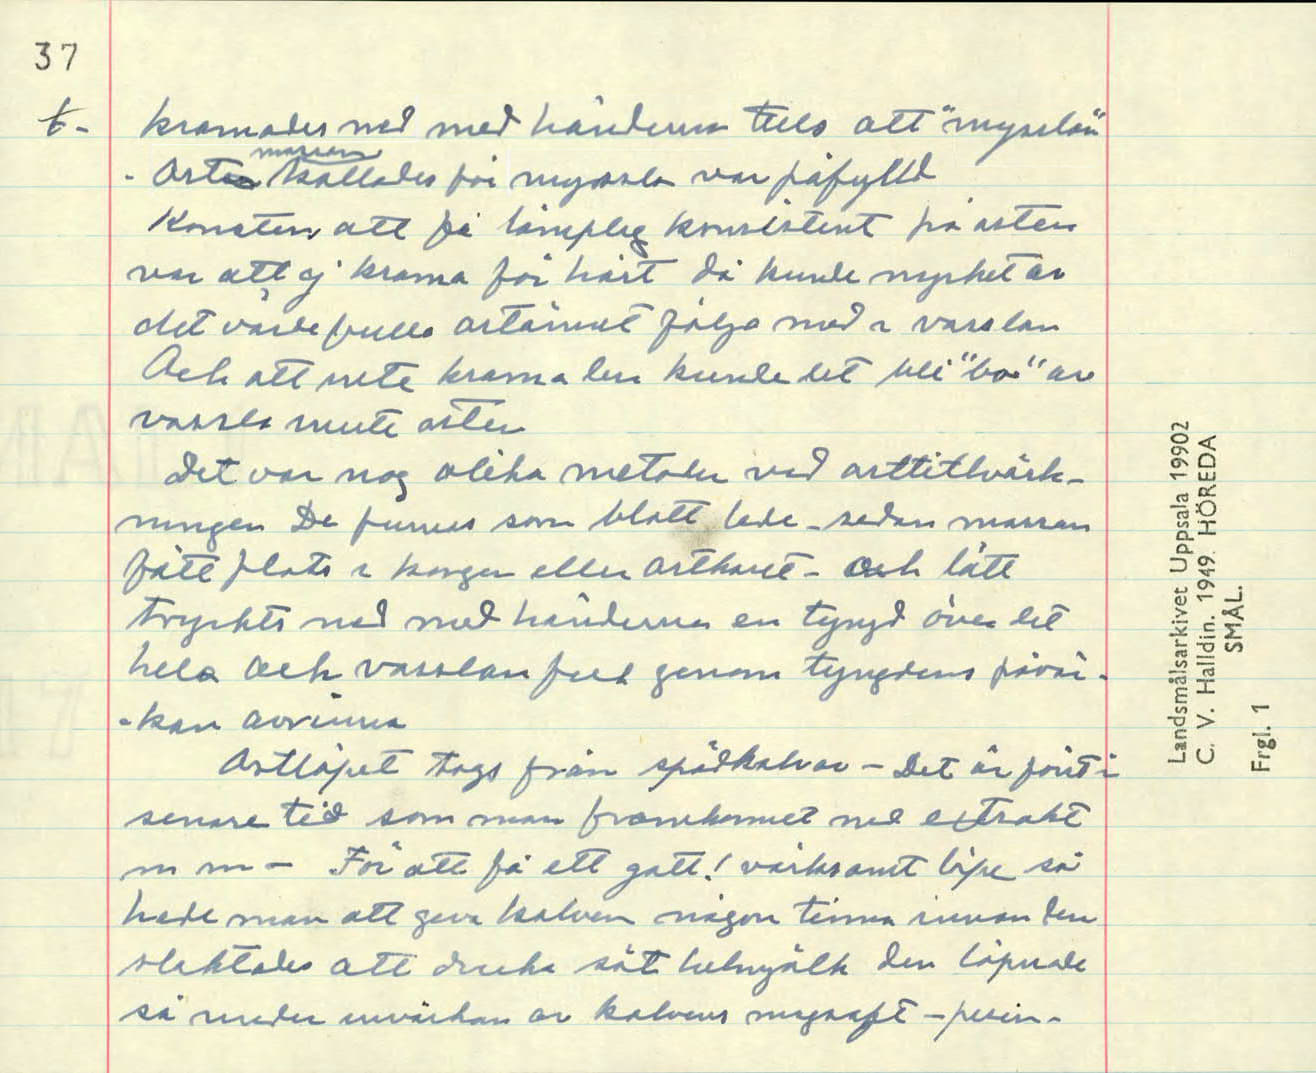 37
t- kramades ned med händerna tills att "mysslan"
massan
- Osten kallades för myssla var påfylld
Konsten, att få lämplig konsistent på osten
var att ej krama för hårt då kunde mycket av
det värdefulla ostämnet följa med i vasslan
Och att inte krama len kunde det bli "bo" av
vassla inuti osten
Det var nog olika metoder vid osttillvärk-
ningen De funnos som blott lade - sedan massan
fått plats i korgen eller ostkaret - och lätt
tryckts ned med händerna en tyngd över det
hela och vasslan fick genom tyngdens påvär-
-kan avrinna
Ostlöpet togs från spädkalvar - Det är först i
senare tid som man framkommet med extrakt
m m - För att få ett gott! värksamt löpe så
hade man att geva kalven någon timma innan den
slaktades att dricka söt helmjölk den löpnade
så under invärkan av kalvens magsaft - pesin-
Landsmålsarkivet Uppsala 19902
C. V. Halldin. 1949. HÖREDA
SMÅL.
Frgl. 1